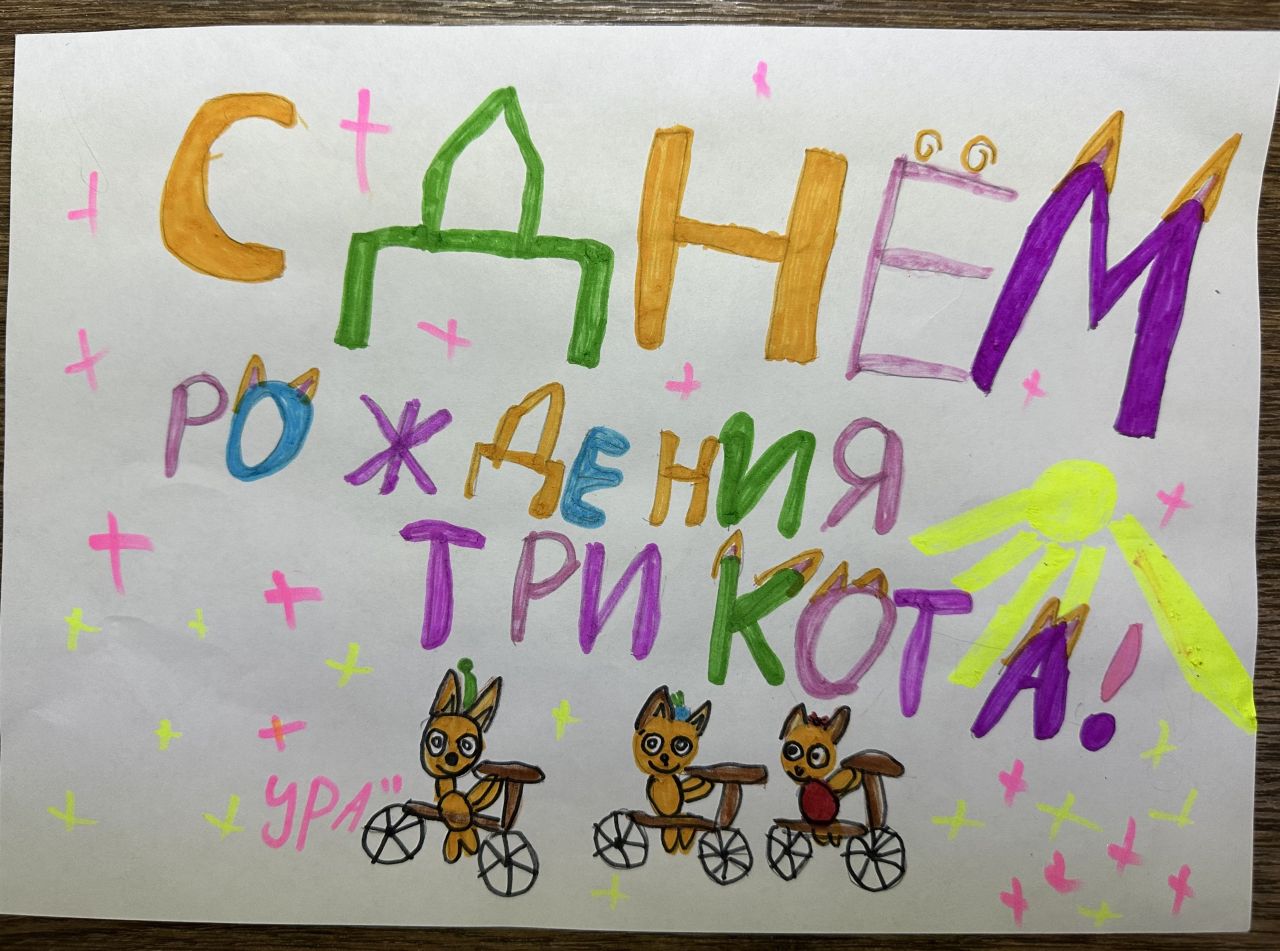 С ДНЁМ
РОЖДЕНИЯ
ТРИ КОТА!
УРА"